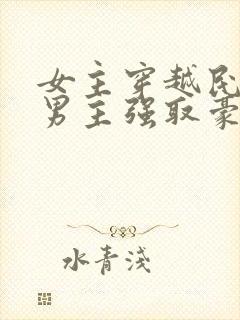 女主穿越民
男主强取豪
水青浅